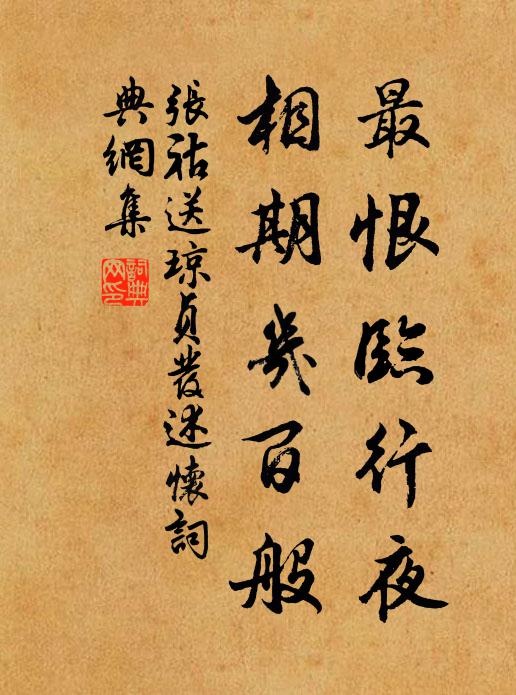 最恨臨行夜
相期幾百般
張祜送琼貞發述懷詞
典網集
詞典網印